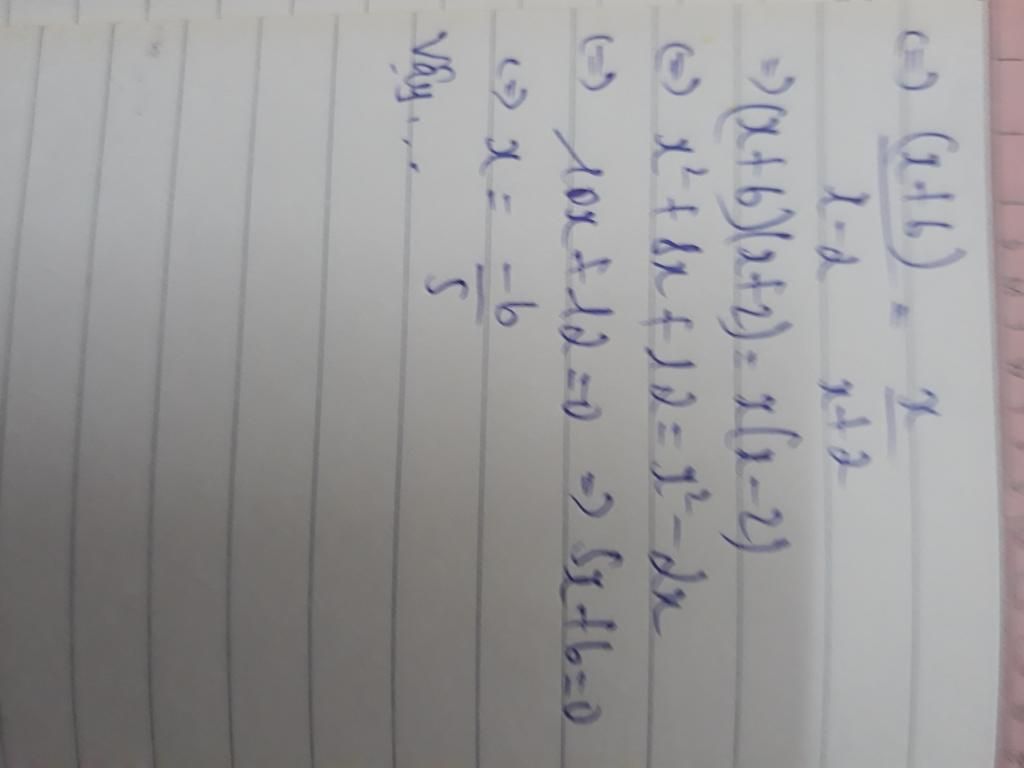 (=) (x+6)/(x-2) = x/(x+2)
=) (x+6)(x+2) = x(x-2)
(=) x² + 8x + 12 = x² - 2x
(=) 10x + 12 = 0 =) 5x + 6 = 0
(=) x = -6/5
Vậy...